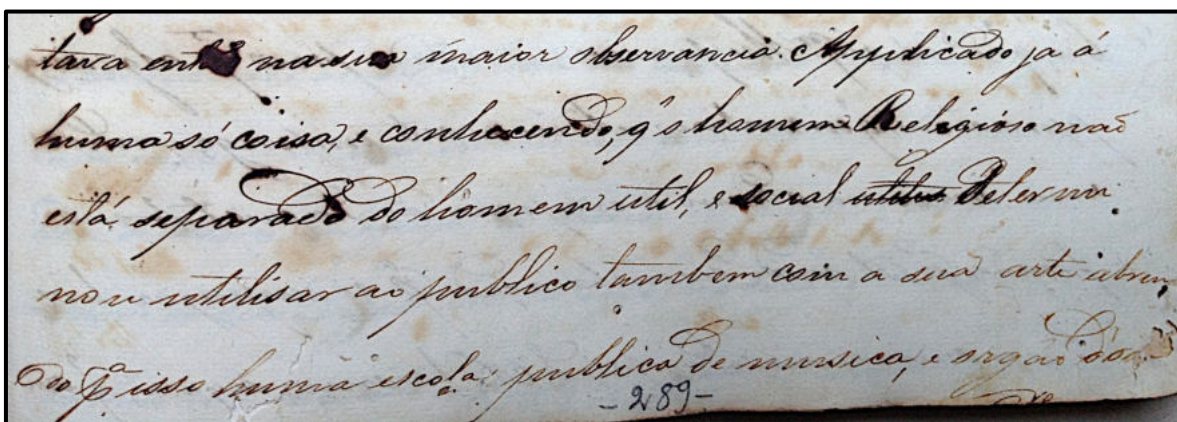 tava entaõ na sua maior observancia. Applicado ja á
huma só coisa, e conhecendo, q̃ o homem Religioso naõ
está separado do homem util, e social Determi
nou utilisar ao publico tambem com a sua arte abrin
do pª isso huma escola publica de musica, e orgaõ
-289-